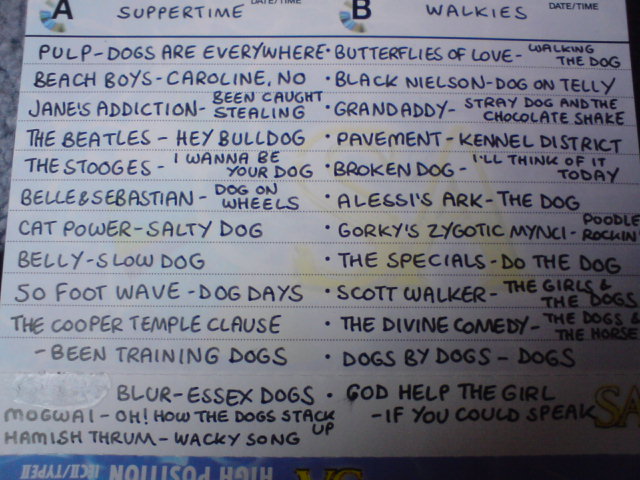 A SUPPERTIME DATE/TIME
B WALKIES DATE/TIME
PULP-DOGS ARE EVERYWHERE
BEACH BOYS-CAROLINE, NO
JANE'S ADDICTION- BEEN CAUGHT STEALING
THE BEATLES - HEY BULLDOG
THE STOOGES - I WANNA BE YOUR DOG
BELLE & SEBASTIAN - DOG ON WHEELS
CAT POWER-SALTY DOG
BELLY-SLOW DOG
50 FOOT WAVE -DOG DAYS
THE COOPER TEMPLE CLAUSE
-BEEN TRAINING DOGS
BLUR-ESSEX DOGS
MOGWAI - OH! HOW THE DOGS STACK UP
HAMISH THRUM-WACKY SONG
• BUTTERFLIES OF LOVE- WALKING THE DOG
• BLACK NIELSON-DOG ON TELLY
• GRANDADDY- STRAY DOG AND THE CHOCOLATE SHAKE
• PAVEMENT-KENNEL DISTRICT
• BROKEN DOG- I'LL THINK OF IT TODAY
• ALESSI'S ARK-THE DOG
• GORKY'S ZYGOTIC MYNCI- POODLE ROCKIN
• THE SPECIALS-DO THE DOG
• SCOTT WALKER- THE GIRLS & THE DOGS
• THE DIVINE COMEDY- THE DOGS & THE HORSE
• DOGS BY DOGS - DOGS
• GOD HELP THE GIRL
-IF YOU COULD SPEAK
SA
HIGH POSITION IECII/TYPEII